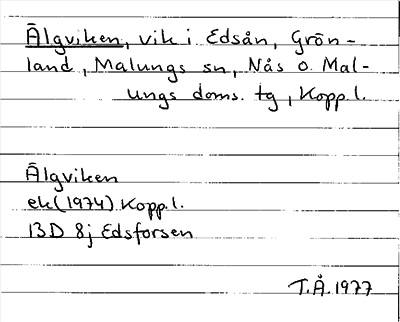 Älgviken, vik i Edsån, Grön-
land, Malungs sn, Nås o. Mal-
ungs doms. tg, Kopp.l.
Älgviken
ek (1974) Kopp.l.
13D 8j Edsforsen
T.Å. 1977